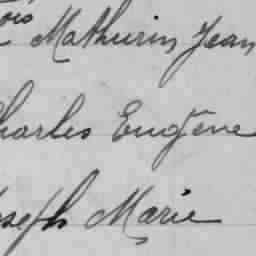 ois
Mathurin Jean
Charles Eugène
Joseph Marie